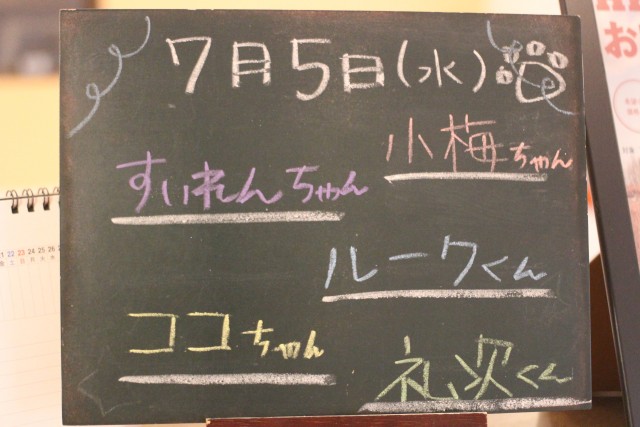 7月5日(水)
小梅ちゃん
すいれんちゃん
ルークくん
ココちゃん
礼次くん
22 23 24 25 26